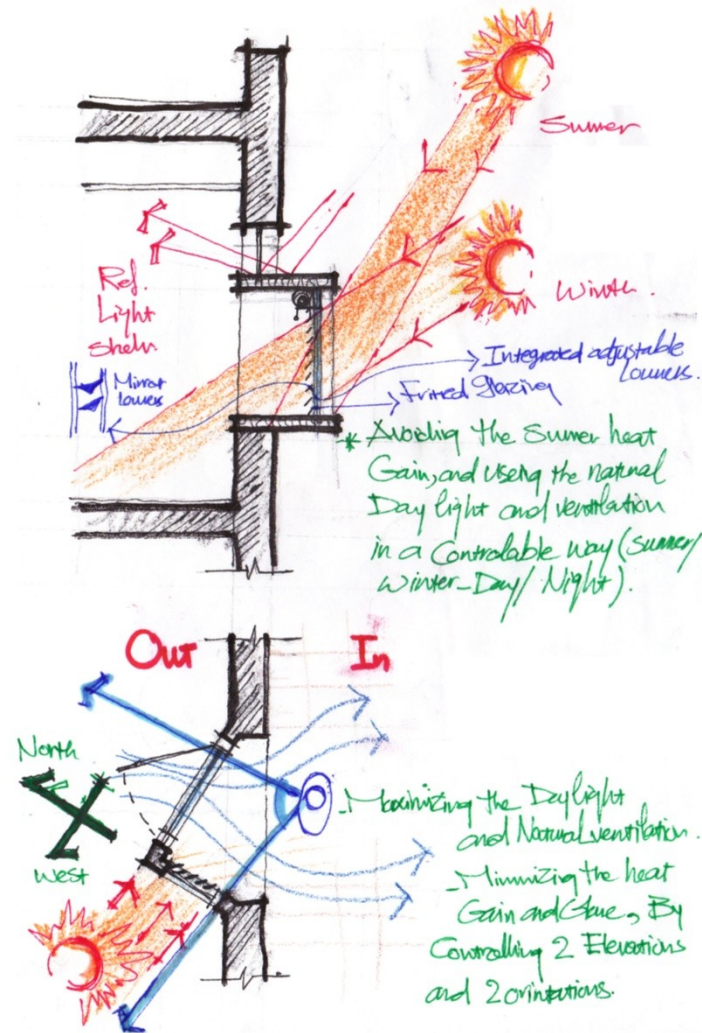 Summer
Winter.
Ref.
Light
Shelv.
Mirror
louvers
Integrated adjustable
Louvers.
Frited Glazing
* Avoiding the Summer heat
Gain, and using the natural
Day light and ventilation
in a Controlable way (Summer/
Winter_Day/ Night).
Out
In
North
West
_Maximizing the Daylight
and Natural ventilation.
_Minimizing the heat
Gain and Glare, By
Controlling 2 Elevations
and 2 orintations.